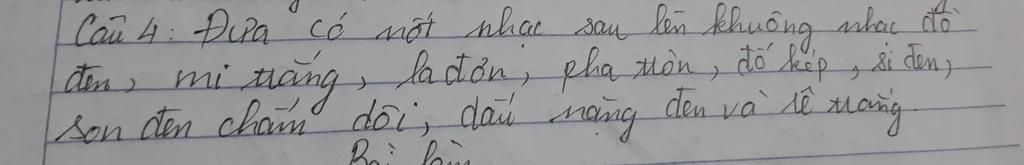 Câu 4: Đưa có nốt nhạc sau lên khuông nhạc đồ
đen, mi trắng, la đơn, pha tròn, đố kép, si đen,
son đen chấm dôi, dấu nặng đen và rê trắng
Bài làm